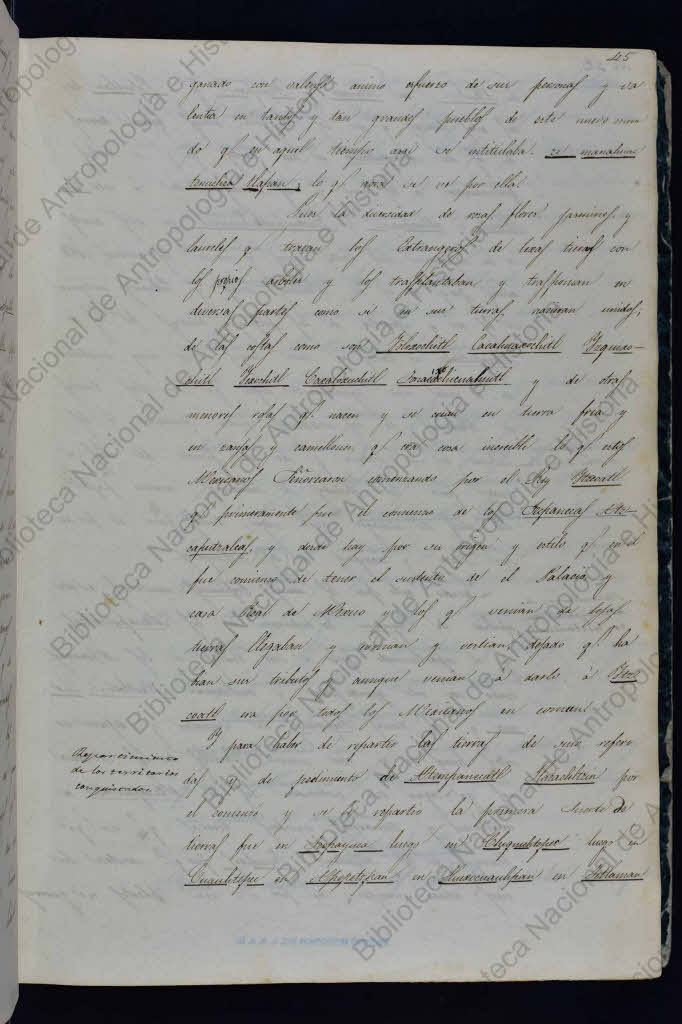 45
ganado con valensia animo esfuerzo de sus personas y va
lentia en tantos y tan grandes pueblos de este nuevo mun
do q.e en aquel tiempo asi se intitulaba
tenuchca tlapan, lo q.e aora se ve por ella.
Pues la diversidad de rosas flores jasmines y
laureles q.e traian los Extrangeros de lexas tierras con
los propios arboles y los trasplantaban y trasponian en
diversas partes como si en sus tierras nacieran unidos;
de las costas como son Cacahuaxochitl Yzquixo-
chitl Cacaloxuchitl y de otras
menores rosas q.e nacen y se crian en tierra fria y
en zanjas y camellones q.e era cosa increible lo q.e estos
Mexicanos Señorearon comenzando por el Rey Itzcoatl
q.e primeramente fue el comienzo de los Tepanecas Atz-
caputzalcas, y desde hay por su origen y estilo q.e en el
fue comienzo de tener el sustento de el Palacio, y
casa Real de Mexico y los q.e venian de lejas
tierras llegaban y comian y vestian, dejado q.e ha
bian sus tributos y aunque venian á darlo á Itz
coatl era por todos los Mexicanos en comun.
Y para haber de repartir las tierras de suso referi
das y de pedimento de Atempanecatl por
el comenzó y se le repartio la primera Suerte de
tierras fue en luego en Chiquiltepec luego en
Cuauhtepec en en en
Repartimiento
de los territorios
conquistados.
Biblioteca Nacional de Antropología e Historia